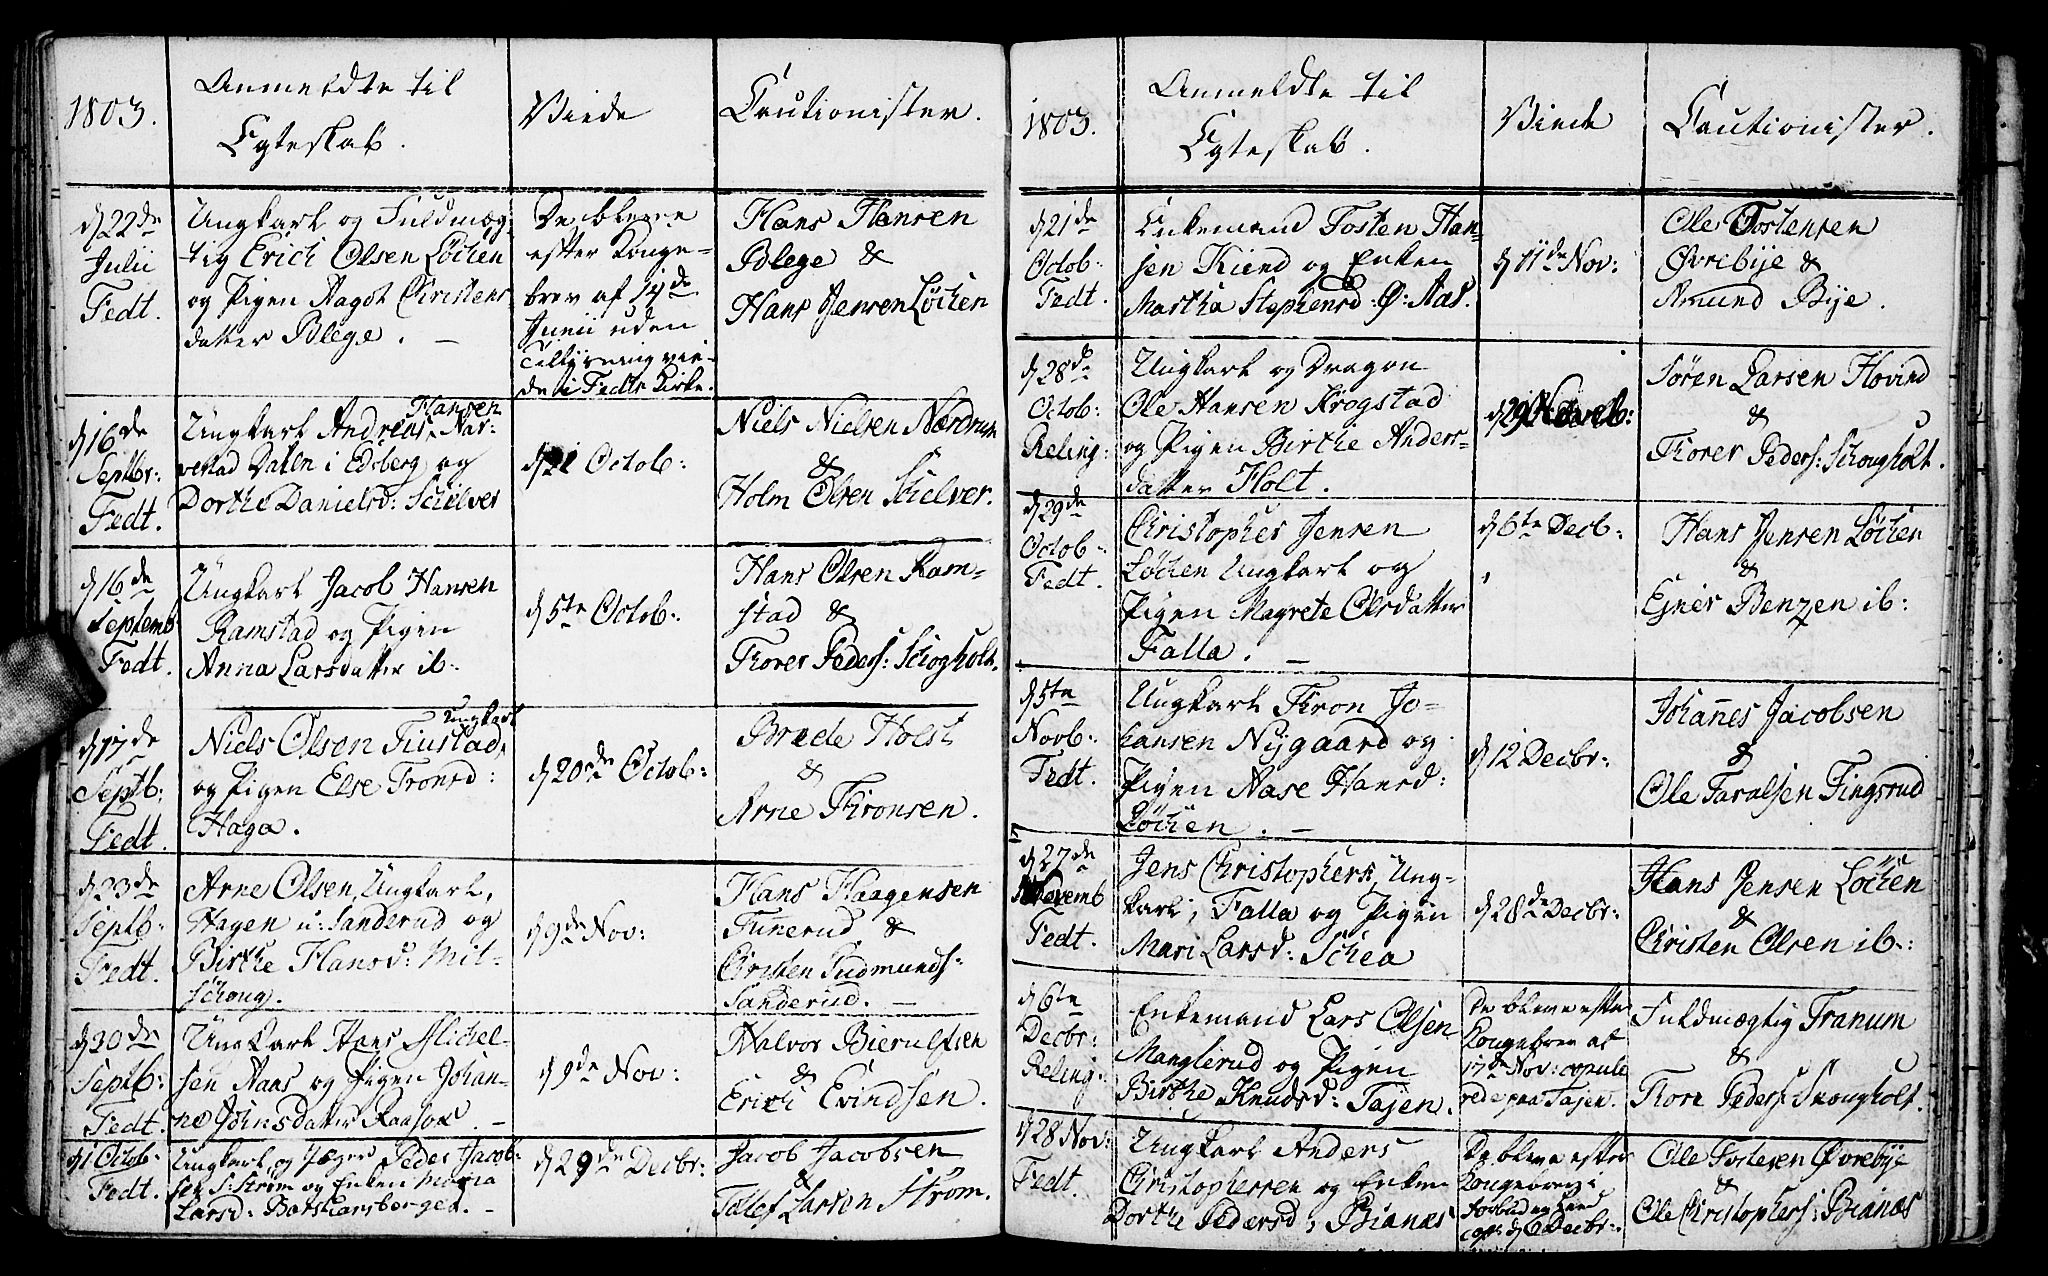 1803.
Anmeldte til
Egteskab.
Viede
Cautionister.
d 22de
Julii
Fedt.
Ungkarl og Fuldmæg-
tig Erich Olsen Løchen
og Pigen Aagot Christens
datter Blege. —
De bleve
efter Konge-
brev af 14de
Junii uden
Tillysning vie-
de i Fedts Kirke.
Hans Hansen
Blege &
Hans Jensen Løchen
d 16de
Septbr:
Fedt.
Hansen
Ungkarl Andreas Nar-
vestad Dalen i Edsberg og
Dorthe Danielsd: Schelver
d 21 Octob:
Niels Nielsen Nærdrum
&
Holm Olsen Schelver.
d 16de
Septemb
Fedt.
Ungkarl Jacob Hansen
Ramstad og Pigen
Anna Larsdatter ib:
d 5te Octob:
Hans Olsen Ram-
stad &
Thorer Peders: Schogholt.
d 17de
Septb:
Fedt.
Ungkarl
Niels Olson Tiustad,
og Pigen Else Tronsd:
Haga.
d 20de Octob:
Brede Holst
&
Arne Thronsen.
d 23de
Septb:
Fedt.
Arne Olsen, Ungkarl,
Hagen u: Sanderud og
Birthe Hansd: Mit-
schoug.
d 9de Nov:
Hans Haagensen
Funerud &
Christen Gudmunds:
Sanderud. —
d 30de
Septb:
Fedt.
Ungkarl Hans Michel-
sen Aas og Pigen Johan-
ne Jönsdatter Raasok. —
d 9de Nov:
Halvor Bierulfsen
&
Erich Evindsen.
d 1 Octob:
Fedt.
Ungkarl og Jæger Peder Jacob-
sen S: Strøm og Enken Maria
Larsd: Batskiarsberget. —
d 29de Decbr:
Jacob Jacobsen
&
Tollef Larsen Strøm.
1803.
Anmeldte til
Egteskab.
Viede
Cautionister.
d 21de
Octob:
Fedt.
Enkemand Tosten Han-
sen Kiind og Enken
Martha Stephensd: Ø: Aas.
d 11de Nov:
Ole Tostensen
Øvrebye &
Amund Bye.
d 28de
Octob:
Reling:
Ungkarl og Dragon
Ole Hansen Krogstad
og Pigen Birthe Anders-
datter Holt.
d 29
Søren Larsen Hovind
&
Thorer Peders: Schougholt.
d 29de
Octob:
Fedt.
Christopher Jensen
Løchen Ungkarl og
Pigen Magrete Olesdatter
Falla. —
d 6te Decb:
Hans Jensen Løchen
&
Ejner Benzen ib:
d 5te
Novb:
Fedt.
Ungkarl Thron Jo-
hansen Nygaard og
Pigen Aase Hansd:
Løchen. —
d 12 Decbr:
Johannes Jacobsen
&
Ole Taralsen Tingsrud
d 27de
Novemb
Fedt.
Jens Christophers, Ung-
karl, Falla og Pigen
Mari Larsd: Schea
d 28de Decbr:
Hans Jensen Løchen
&
Christen Olsen ib:
d 6te
Decbr:
Reling:
Enkemand Lars Olsen
Manglerud og Pigen
Birthe Knudsd: Tajen.
De bleve efter
Kongebrev af
17de Nov: copule
rede paa Tajen.
Fuldmægtig Tranum
&
Thore Peders: Skougholt.
d 28 Nov:
Fedt.
Ungkarl Anders
Christophersen og Enken
Dorthe Pedersd: Bianæs
De bleve efter
Kongebrev i
cop: d 6 Decbr:
Ole Tostesen Øvrebye
&
Ole Christophers: Bianæs